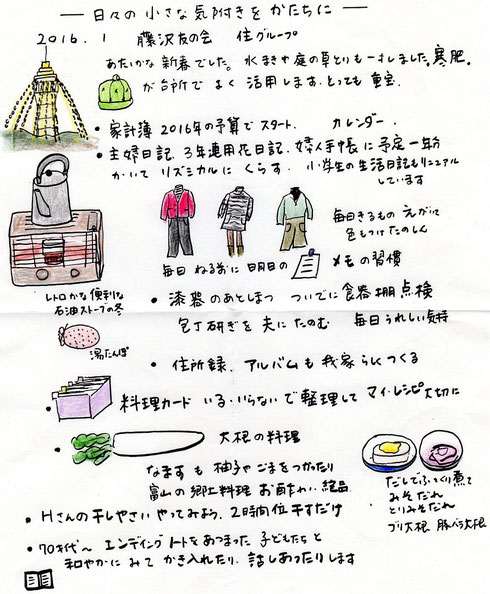 ― 日々の小さな気附きをかたちに ―
2016.1 藤沢友の会 住グループ
あたたかな新春でした。水まきや庭の草とりも一すしました。寒肥。
が台所で よく 活用します。とっても 重宝.
・家計簿 2016年の予算で スタート. カレンダー.
・主婦日記. 3年連用花日記. 婦人手帳に 予定一年分
かいて リズミカルに くらす. 小学生の生活日記もリニュアル
しています
毎日きるもの えがいて
色もつけ たのしん
毎日 ねる前に 明日の メモの習慣
レトロかな 便利な
石油ストーブの冬
・漆器のあとしまつ ついでに 食器棚点検
包丁研ぎを 夫に たのむ 毎日うれしい気持
湯たんぽ
・住所録. アルバムも 我家らしくつくる
・料理カード いる・いらないで 整理して マイ・レシピ 大切に
・大根の料理
なます も 柚子や ごまをつかったり
富山の郷土料理 お酢あい. 絶品.
だしでふっくり煮て
みそだれ
とりみそだれ
ブリ大根. 豚バラ大根.
・Hさんの干しやさい やってみよう. 2時間位干すだけ
・70才代〜 エンディングノートを あつまった 子どもたちと
和やかに みて かき入れたり. 話しあったりします